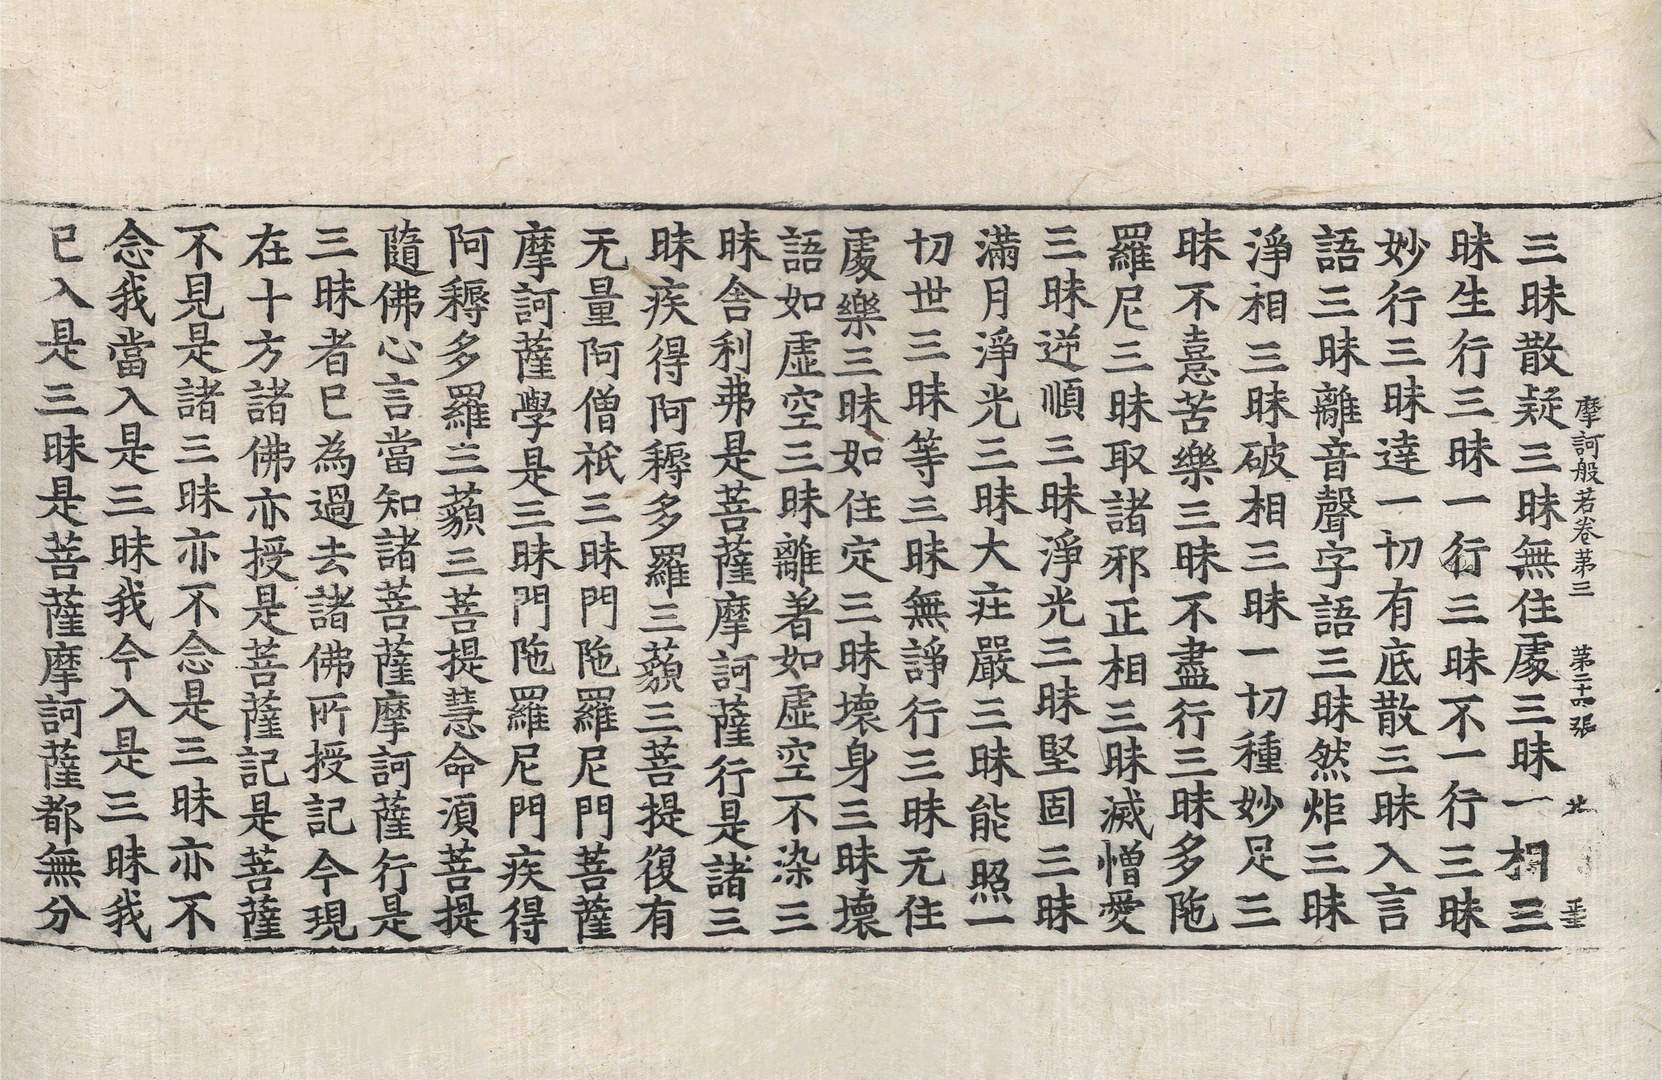 摩訶般若卷苐三　苐二十四張　北
三昧散疑三昧無住處三昧一相三
昧生行三昧一行三昧不一行三昧
妙行三昧達一切有底散三昧入言
語三昧離音聲字語三昧然炬三昧
淨相三昧破相三昧一切種妙足三
昧不憙苦樂三昧不盡行三昧多陁
羅尼三昧取諸邪正相三昧滅憎愛
三昧逆順三昧淨光三昧堅固三昧
滿月淨光三昧大莊嚴三昧能照一
切世三昧等三昧無諍行三昧无住
處樂三昧如住定三昧壞身三昧壞
語如虛空三昧離著如虛空不染三
昧舍利弗是菩薩摩訶薩行是諸三
昧疾得阿耨多羅三藐三菩提復有
无量阿僧祇三昧門陁羅尼門菩薩
摩訶薩學是三昧門陁羅尼門疾得
阿耨多羅三藐三菩提慧命湏菩提
隨佛心言當知諸菩薩摩訶薩行是
三昧者已為過去諸佛所授記今現
在十方諸佛亦授是菩薩記是菩薩
不見是諸三昧亦不念是三昧亦不
念我當入是三昧我今入是三昧我
已入是三昧是菩薩摩訶薩都無分